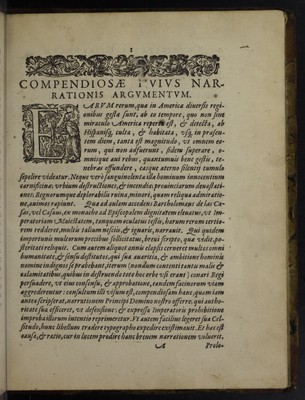 1
COMPENDIOSÆ HVIVS NAR-
RATIONIS ARGVMENTVM.
EARVM rerum, qua in America diuersis regi-
onibus gesta sunt, ab eo tempore, quo non sine
miraculo America reperta est, & detecta, ab
Hispanisq; culta, & habitata, vsq; in præsen-
tem diem, tanta est magnitudo, vt omnem eo-
rum, qui non adfuerunt, fidem superare,
omnique aui rebus, quantumuis bene gestis, te-
nebras offundere, easque aterno silentij cumulo
sepelire videatur. Neque verò sanguinolenta illa hominum innocentium
carnificina: vrbium destructiones, & incendia: prouinciarum deuastati-
ones. Regnorumque deplorabilis ruina, minori, quam reliqua admiratio-
ne, animos rapiunt. Qua ad aulam accedens Bartholomæus de las Ca-
sas, vel Casaus, ex monacho ad Episcopalem dignitatem eleuatus, vt Im-
peratoriam Maiestatem, tanquam oculatus testis, harum rerum certio-
rem redderet, multis talium nescijs, & ignaris, narrauit. Qui quidem
importunis multorum precibus sollicitatus, breui scripto, qua vidit, po-
steritati reliquit. Cum autem aliquot annis elapsis cerneret multos omni
humanitate, & sensu destitutos, qui sua auaritia, & ambitione hominis
nomine indignos se prabebant, iterum (nondum contenti tantis malis &
calamitatibus, quibus in destruendo toto hoc orbe vsi erant) conari Regi
persuadere, vt eius consensu, & approbatione, eandem facinorum viam
aggrederentur: consultum illi visum est, compendiosam hanc, quam iam
antea scripserat, narrationem Principi Domino nostro offerre, qui autho-
ritate sua efficeret, vt defensione, & expressa Imperatoris prohibitione
improba illorum intentio reprimeretur. Vt autem facilius legeret sua Cel-
situdo, hunc libellum tradere typographo expedire existimauit. Et hac est
causa, & ratio, cur in lucem prodire hanc breuem narrationem voluerit.
A Prolo-